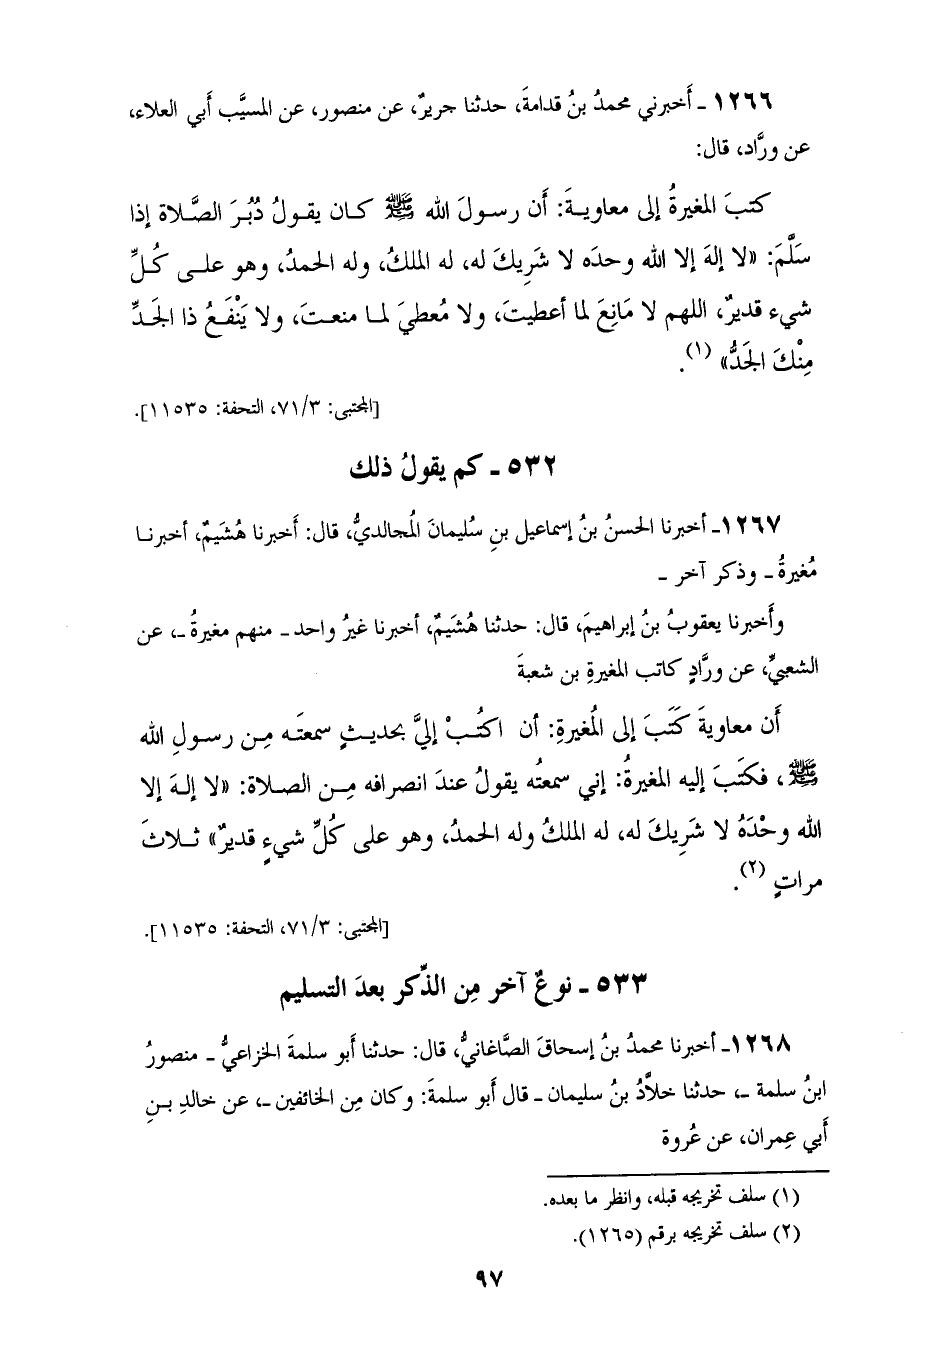 ١٢٦٦ ـ أَخبرني محمدُ بنُ قدامةَ، حدثنا جريرٌ، عن منصور، عن المسيَّب أَبي العلاء،
عن ورَّاد، قال:
كتبَ المغيرةُ إلى معاويـةَ: أَن رسـولَ الله ﷺ كـان يقـولُ دُبُـرَ الصَّـلاة إذا
سَلَّمَ: «لا إلهَ إلا الله وحدَه لا شَرِيكَ له، له الملكُ، وله الحمدُ، وهو علـى كُـلِّ
شيء قديرٌ، اللهم لا مَانِعَ لما أَعطيتَ، ولا مُعطيَ لمـا منعـتَ، ولا يَنْفَـعُ ذا الجَـدِّ
مِنْكَ الجَدُّ» (١).
[المجتبى: ٧١/٣، التحفة: ١١٥٣٥].
٥٣٢ ـ كم يقولُ ذلك
١٢٦٧ـ أخبرنا الحسنُ بنُ إسماعيل بنِ سُليمانَ المُجالديُّ، قال: أَخبرنا هُشَيمٌ، أخبرنـا
مُغيرةُ ـ وذكر آخر ـ
وأَخبرنا يعقوبُ بنُ إبراهيمَ، قال: حدثنا هُشَيمٌ، أخبرنا غيرُ واحد ـ منهم مغيرةُ ـ، عن
الشعبيِّ، عن ورَّادٍ كاتب المغيرةِ بن شعبةَ
أَن معاويةَ كَتَبَ إلى المُغيرةِ: أن اكتُـبْ إليَّ بحديـثٍ سمعتَـه مِـن رسـولِ الله
ﷺ، فكتَبَ إليه المغيرةُ: إني سمعتُه يقولُ عندَ انصرافه مِـن الصـلاة: «لا إلـهَ إلا
الله وحْدَهُ لا شَرِيكَ له، له الملكُ وله الحمدُ، وهو على كُلِّ شيءٍ قديرٌ» ثـلاثَ
مراتٍ (٢).
[المجتبى: ٧١/٣، التحفة: ١١٥٣٥].
٥٣٣ ـ نوعٌ آخر مِن الذِّكر بعدَ التسليم
١٢٦٨ـ أخبرنا محمدُ بنُ إسحاقَ الصَّاغانيُّ، قال: حدثنا أَبو سلمةَ الخزاعيُّ ـ منصورُ
ابنُ سلمة ـ، حدثنا خلاَّدُ بنُ سليمان ـ قال أَبو سلمةَ: وكان مِن الخائفين ـ، عن خالدِ بـنِ
أَبي عِمران، عن عُروة
(١) سلف تخريجه قبله، وانظر ما بعده.
(٢) سلف تخريجه برقم (١٢٦٥).
٩٧